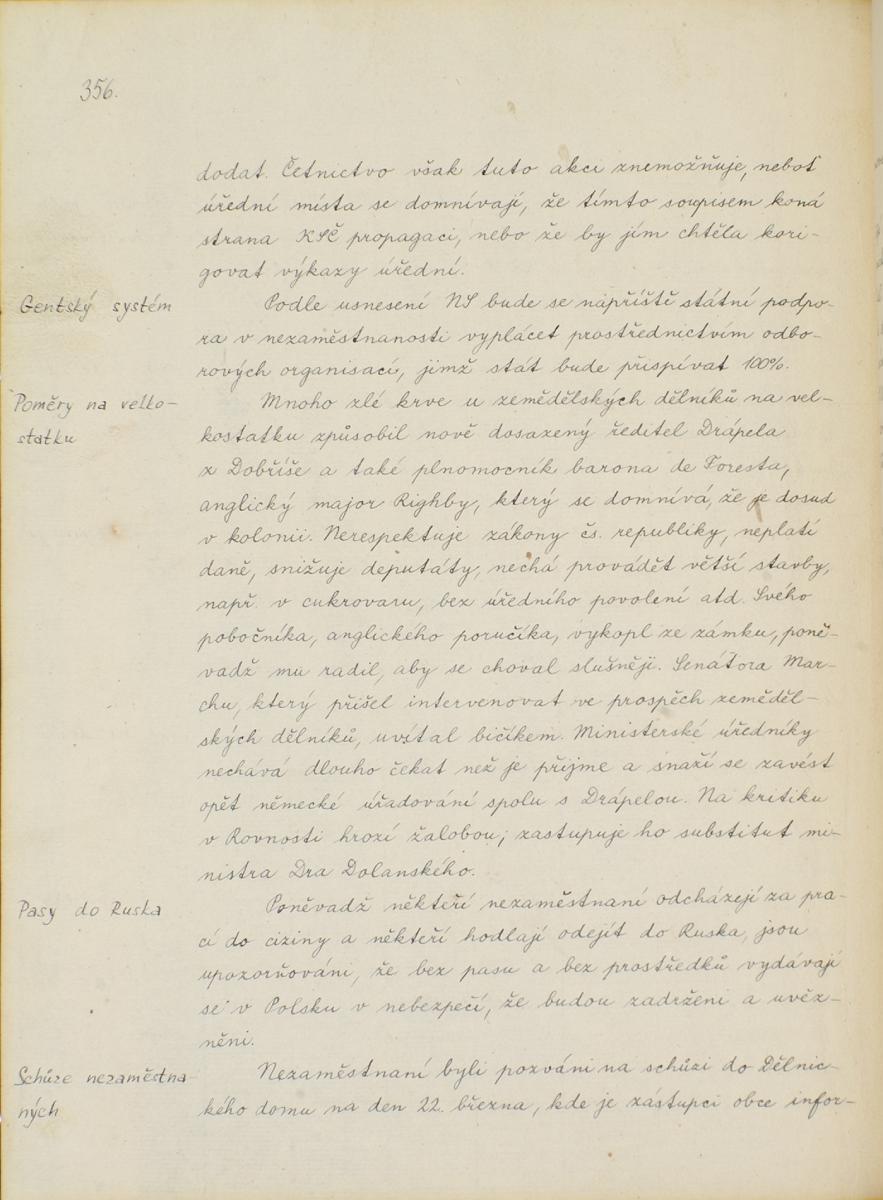 356.
dodat. Četnictvo však tuto akci znemožňuje, neboť
úřední místa se domnívají, že tímto soupisem koná
strana KSČ propagaci, nebo že by jím chtěla kori-
govat výkazy úřední.
Gentský systém
Podle usnesení NS bude se napříště státní podpo-
ra v nezaměstnanosti vyplácet prostřednictvím odbo-
rových organisací, jimž stát bude přispívat 100%.
Poměry na velko-
statku
Mnoho zlé krve u zemědělských dělníků na vel-
kostatku způsobil nově dosazený ředitel Drápela
z Dobříše a také plnomocník barona de Foresta,
anglický major Righby, který se domnívá, že je dosud
v kolonii. Nerespektuje zákony čs. republiky, neplatí
daně, snižuje deputáty, nechá provádět větší stavby,
např. v cukrovaru, bez úředního povolení atd. Svého
pobočníka, anglického poručíka, vykopl ze zámku, poně-
vadž mu radil, aby se choval slušněji. Senátora Mar-
chu, který přišel intervenovat ve prospěch zeměděl-
ských dělníků, uvítal bičíkem. Ministerské úředníky
nechává dlouho čekat než je přijme a snaží se zavést
opět německé úřadování spolu s Drápelou. Na kritiku
v Rovnosti hrozí žalobou; zastupuje ho substitut mi-
nistra Dra Dolanského.
Pasy do Ruska
Poněvadž někteří nezaměstnaní odcházejí za pra-
cí do ciziny a někteří hodlají odejít do Ruska, jsou
upozorňováni, že bez pasu a bez prostředků vydávají
se v Polsku v nebezpečí, že budou zadrženi a uvěz-
něni.
Schůze nezaměstna-
ných
Nezaměstnaní byli pozváni na schůzi do Dělnic-
kého domu na den 22. března, kde je zástupci obce infor-